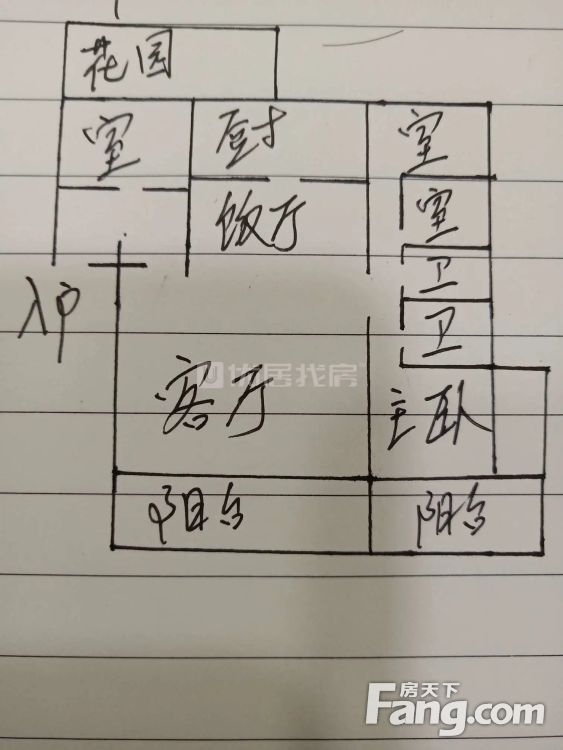 花园
室 厨 室
饭厅 室
卫
入户 卫
优居找房
客厅 主卧
阳台 阳台
房天下
Fang.com